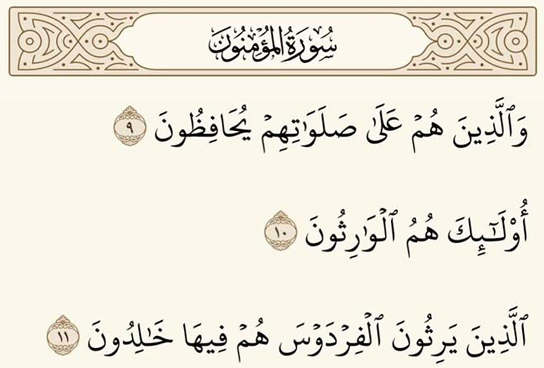 سُورَةُ المُؤْمِنُونَ
وَٱلَّذِينَ هُمۡ عَلَىٰ صَلَوَٰتِهِمۡ يُحَافِظُونَ ٩
أُوْلَٰٓئِكَ هُمُ ٱلۡوَٰرِثُونَ ١٠
ٱلَّذِينَ يَرِثُونَ ٱلۡفِرۡدَوۡسَ هُمۡ فِيهَا خَٰلِدُونَ ١١